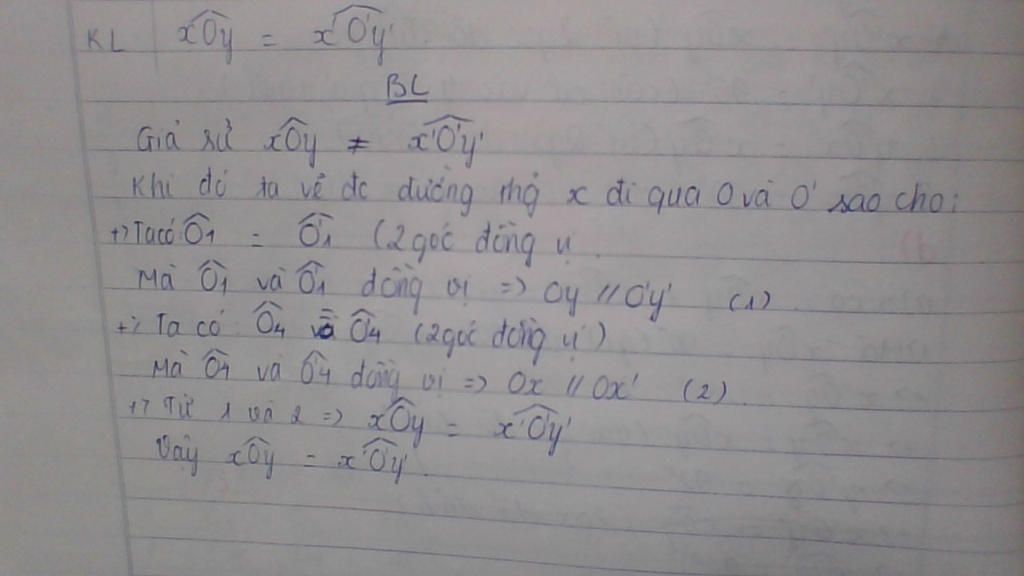 KL xOy = x'O'y'
BL
Giả sử xOy ≠ x'O'y'
Khi đó ta vẽ đc đường thg x đi qua O và O' sao cho:
+) Ta có O1 = O'1 (2 góc đồng vị
Mà O1 và O'1 đồng vị => Oy // O'y' (1)
+) Ta có O4 = O4 (2 góc đồng vị)
Mà O4 và O'4 đồng vị => Ox // Ox' (2)
+) Từ 1 và 2 => xOy = x'O'y'
Vậy xOy = x'O'y'